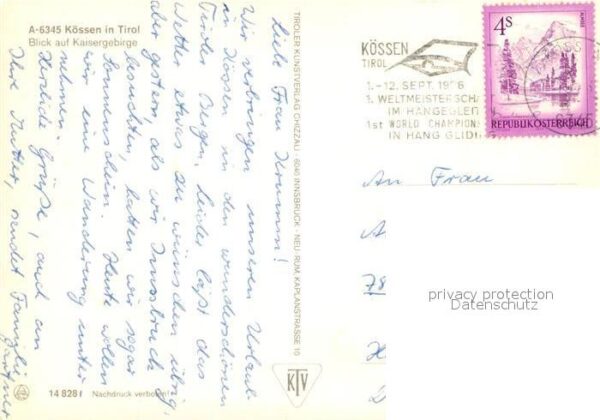 A-6345 Kössen in Tirol
Blick auf Kaisergebirge
Liebe Frau
Wir verbringen unseren Urlaub
in Kössen in den wunderschönen
Tiroler Bergen, leider läßt das
Wetter etwas zu wünschen übrig,
aber gestern, als wir Innsbruck
besuchten, hatten wir sogar
Sonnenschein. Heute wollen
wir eine Wanderung unter
nehmen.
Herzliche Grüße, auch an
Ihre Mutter, sendet Familie
Gärtner
14 828 f Nachdruck verboten!
TIROLER KUNSTVERLAG CHIZZALI · 6040 INNSBRUCK - NEU-RUM KAPLANSTRASSE 10
KTV
KÖSSEN
TIROL
1.-12. SEPT. 1976
1. WELTMEISTERSCHA
IM HÄNGEGLEI
1st WORLD CHAMPION
IN HANG GLIDI
4S
REPUBLIK ÖSTERREICH
An Frau
A
78
H
D
privacy protection
Datenschutz